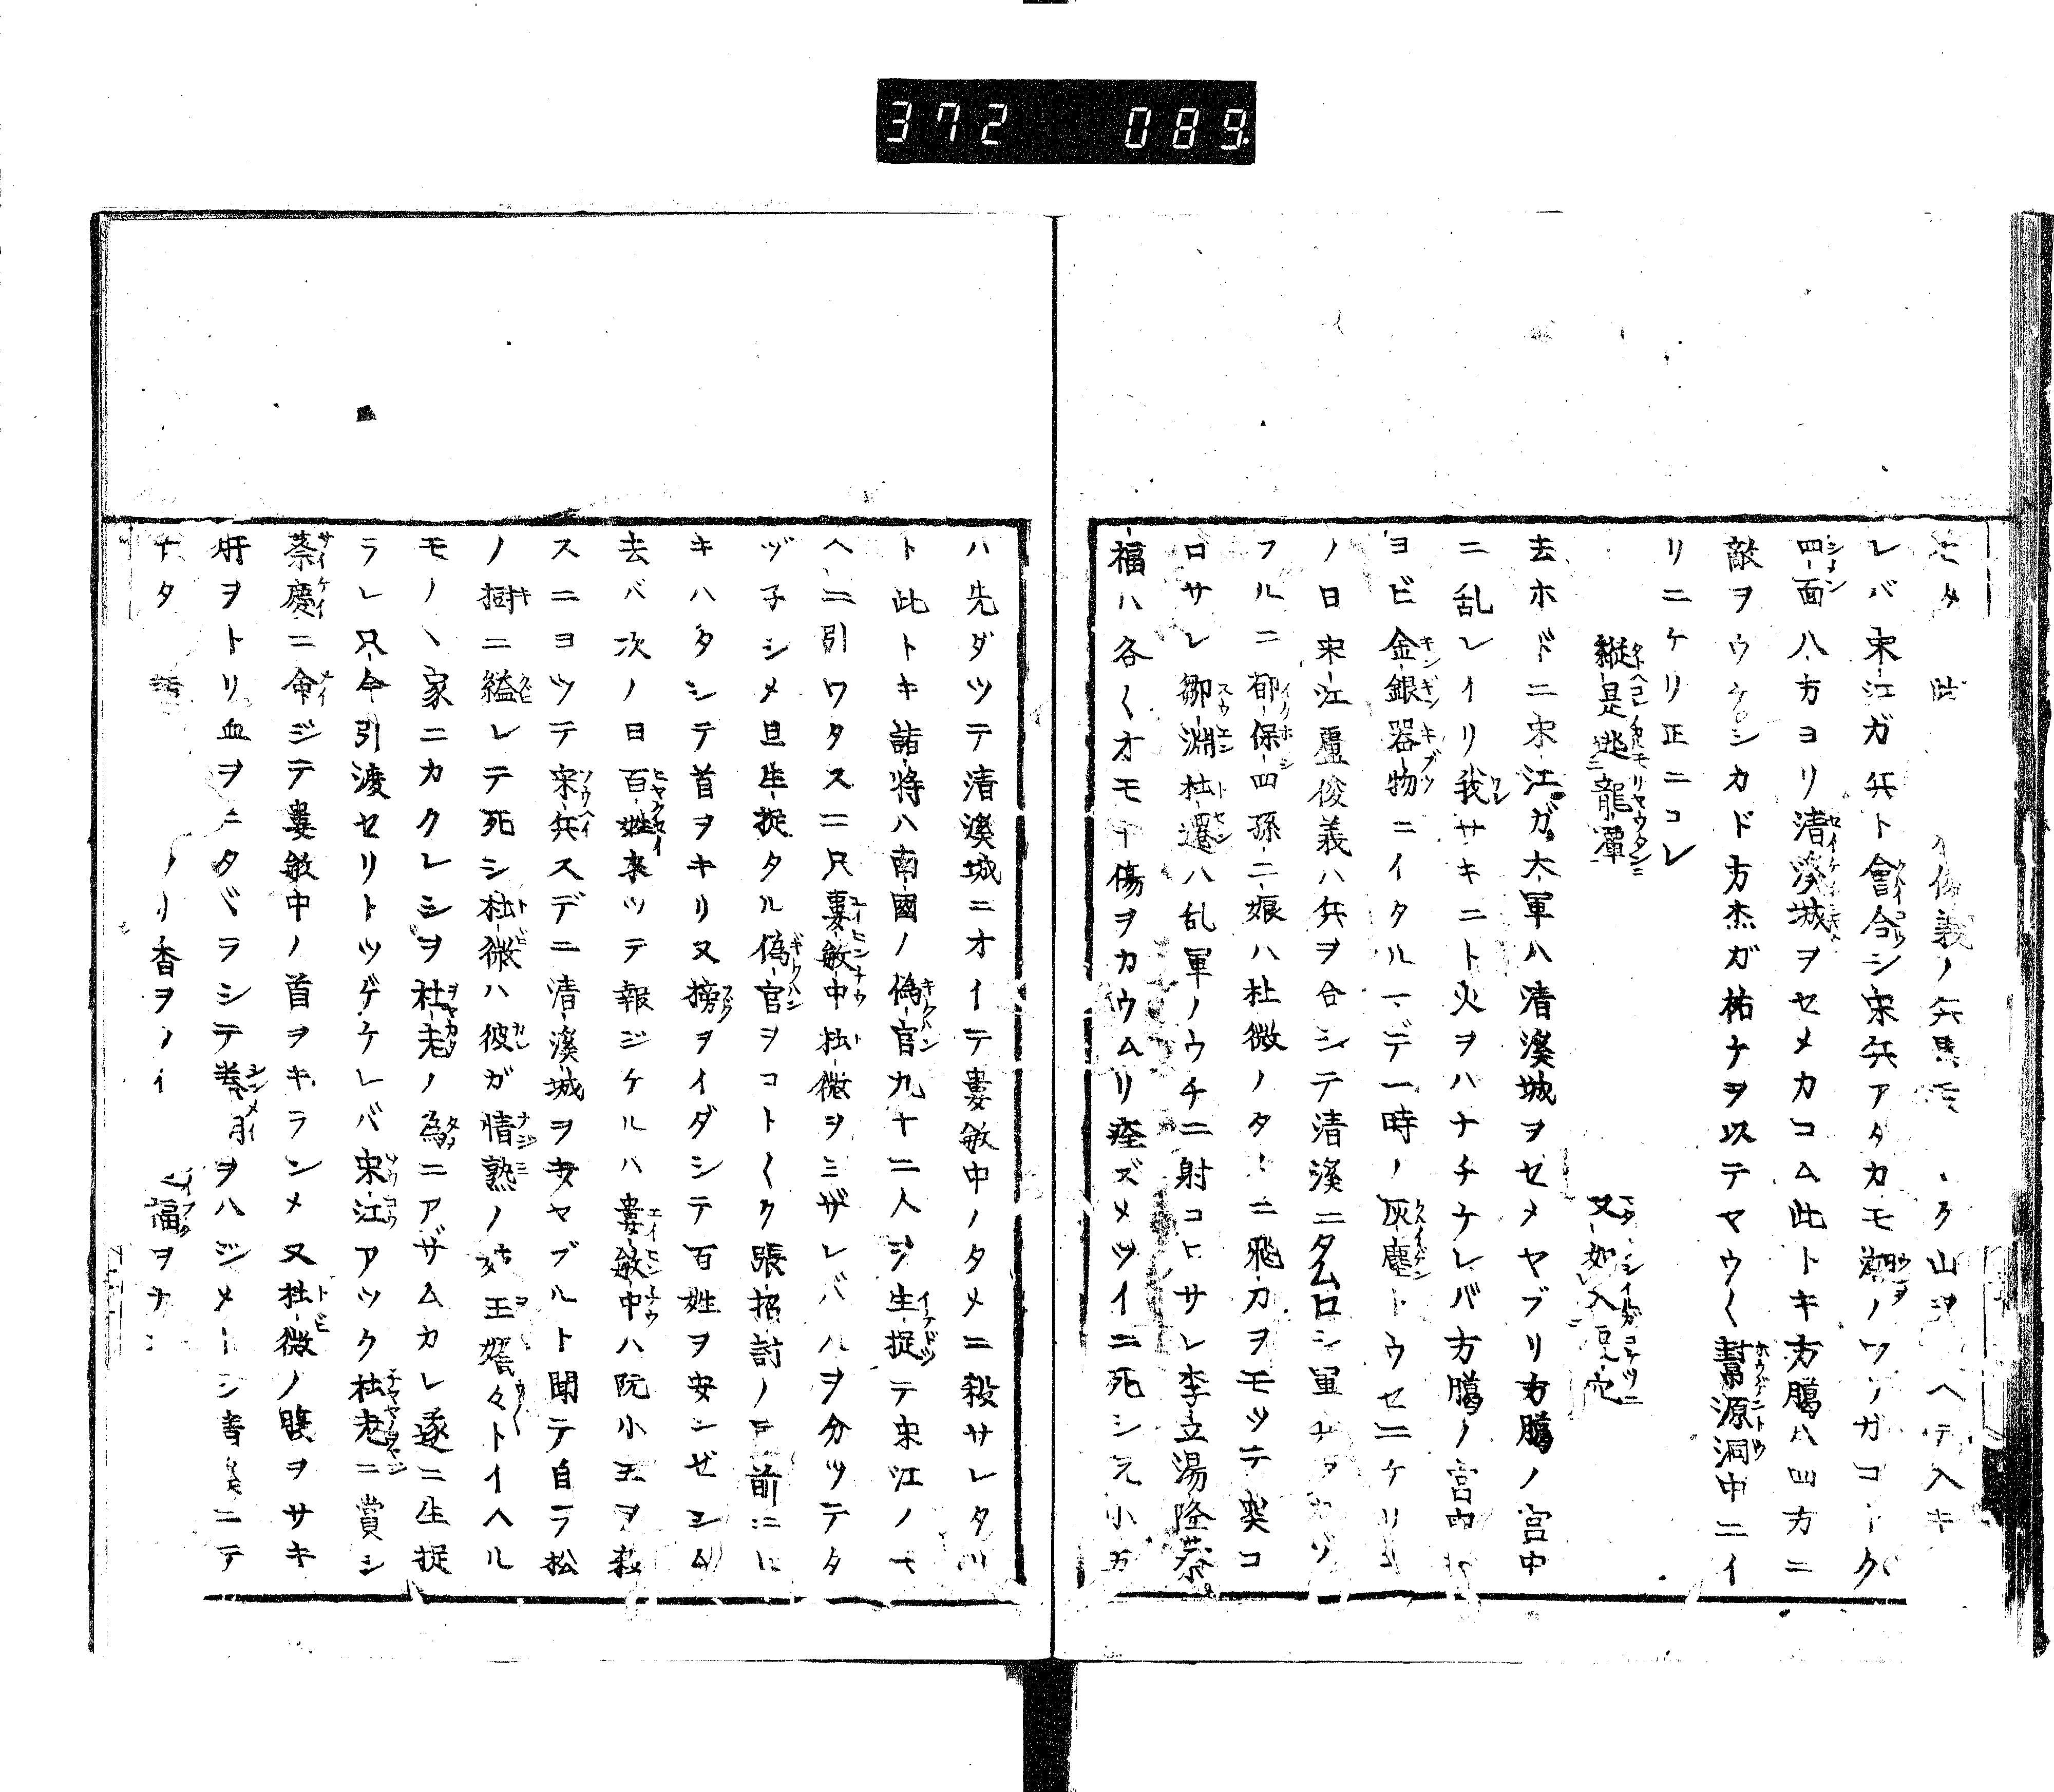 372 089
俊義ノ兵馬モ 山ヲ ヘテ入キ
レバ宋江ガ兵ト會合シ宋兵アタカモ潮ノワクガコトク
四面八方ヨリ清溪城ヲセメカコム此トキ方臘ハ四方ニ
敵ヲウケシカド方杰ガ祐ケヲ以テヤウ〱幇源洞中ニイ
リニケリ正ニコレ
縦是逃龍潭 又如入虎穴
去ホドニ宋江ガ大軍ハ清溪城ヲセメヤブリ方臘ノ宮中
ニ乱レイリ我サキニト火ヲハナチケレバ方臘ノ宮内
ヨビ金銀器物ニイタルマデ一時ノ灰塵トウセニケリ
ノ日宋江盧俊義ハ兵ヲ合シテ清溪ニタムロシ軍
フルニ郁保四孫二娘ハ杜微ノタメニ飛刀ヲモツテ突コ
ロサレ鄒淵杜遷ハ乱軍ノウチニ射コロサレ李立湯隆蔡
福ハ各〱オモキ傷ヲカウムリ痊ズメツイニ死シ元小五
ハ先ダツテ清溪城ニオイテ婁敏中ノタメニ殺サレタリ
ト此トキ諸将ハ南國ノ偽官九十二人ヲ生捉テ宋江ノマ
ヘニ引ワタスニ只婁敏中杜微ヲミザレバ兵ヲ分ツテタ
ヅ子シメ且生捉タル偽官ヲコト〱ク張招討ノ前ニ
キハタシテ首ヲキリ又榜ヲイダシテ百姓ヲ安ンゼシム
去バ次ノ日百姓来ツテ報ジケルハ婁敏中ハ阮小五ヲ殺
スニヨツテ宋兵スデニ清溪城ヲせヤブルト聞テ自ラ松
ノ樹ニ縊レテ死シ杜微ハ彼ガ情熟ノ妓王嬌々トイヘル
モノヽ家ニカクレシヲ社老ノ為ニアザムカレ遂ニ生捉
ラレ只今引渡セリトツゲケレバ宋江アツク社老ニ賞シ
蔡慶ニ命ジテ婁敏中ノ首ヲキランメ又杜微ノ腹ヲサキ
肝ヲトリ血ヲシタバラシテ秦明ヲハジメ
香ヲ 福ヲ